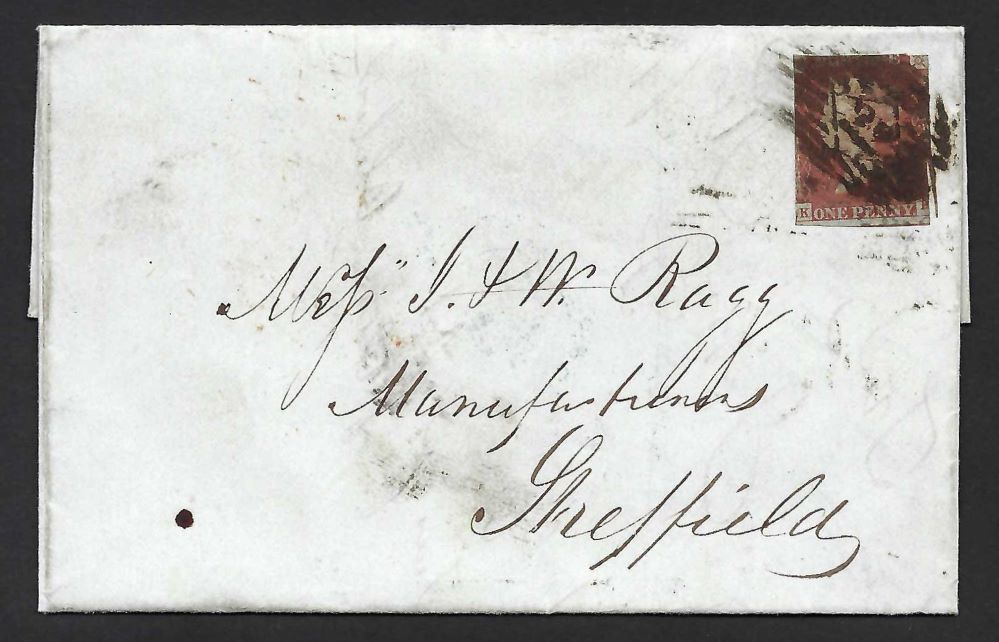 K ONE PENNY
Mess^rs J. & W. Ragg
Manufacturers
Sheffield